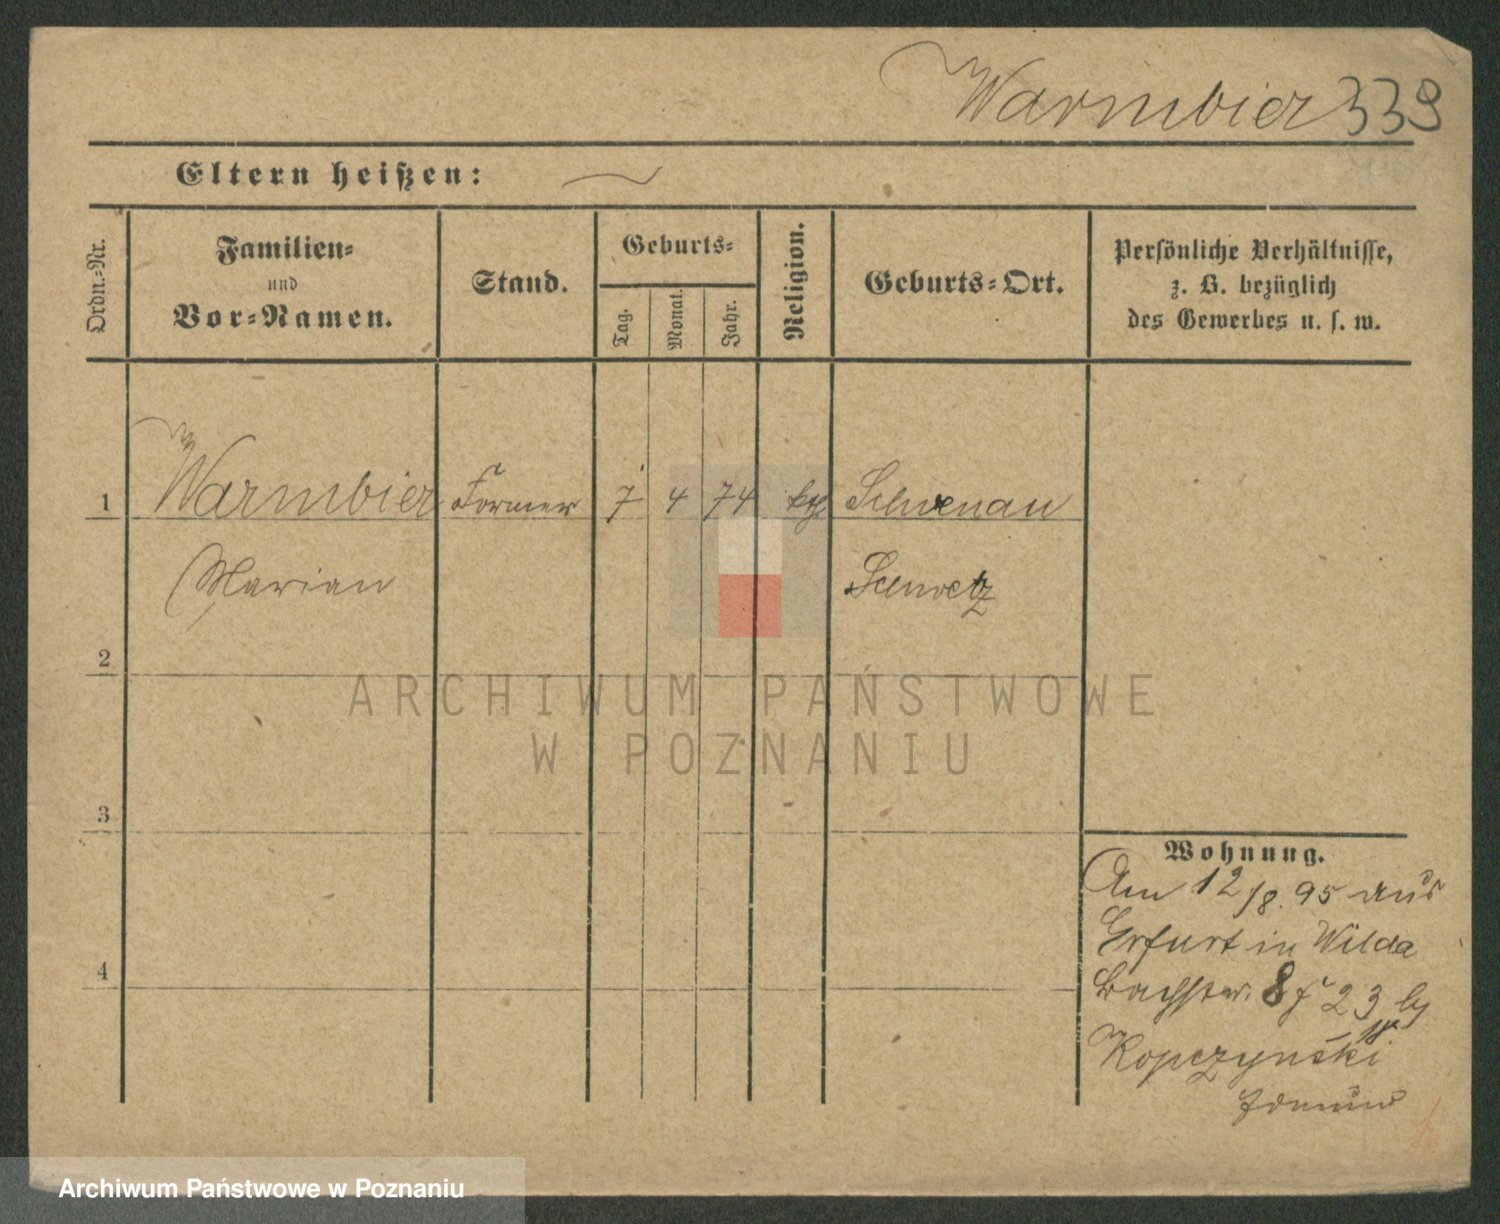 Warmbier 339
Eltern heißen:
Ordn.-Nr.
Familien-
und
Vor-Namen.
Stand.
Geburts-
Tag.
Monat.
Jahr.
Religion.
Geburts-Ort.
Persönliche Verhältnisse,
z. B. bezüglich
des Gewerbes u. s. w.
1 Warmbier Former 7 4 74 Schoenau
Marian Schwetz
2
3
4
Wohnung.
Am 12/8. 95 aus
Erfurt in Wilda
Bachstr. 8
Kopczyński
ARCHIWUM PAŃSTWOWE
W POZNANIU
Archiwum Państwowe w Poznaniu